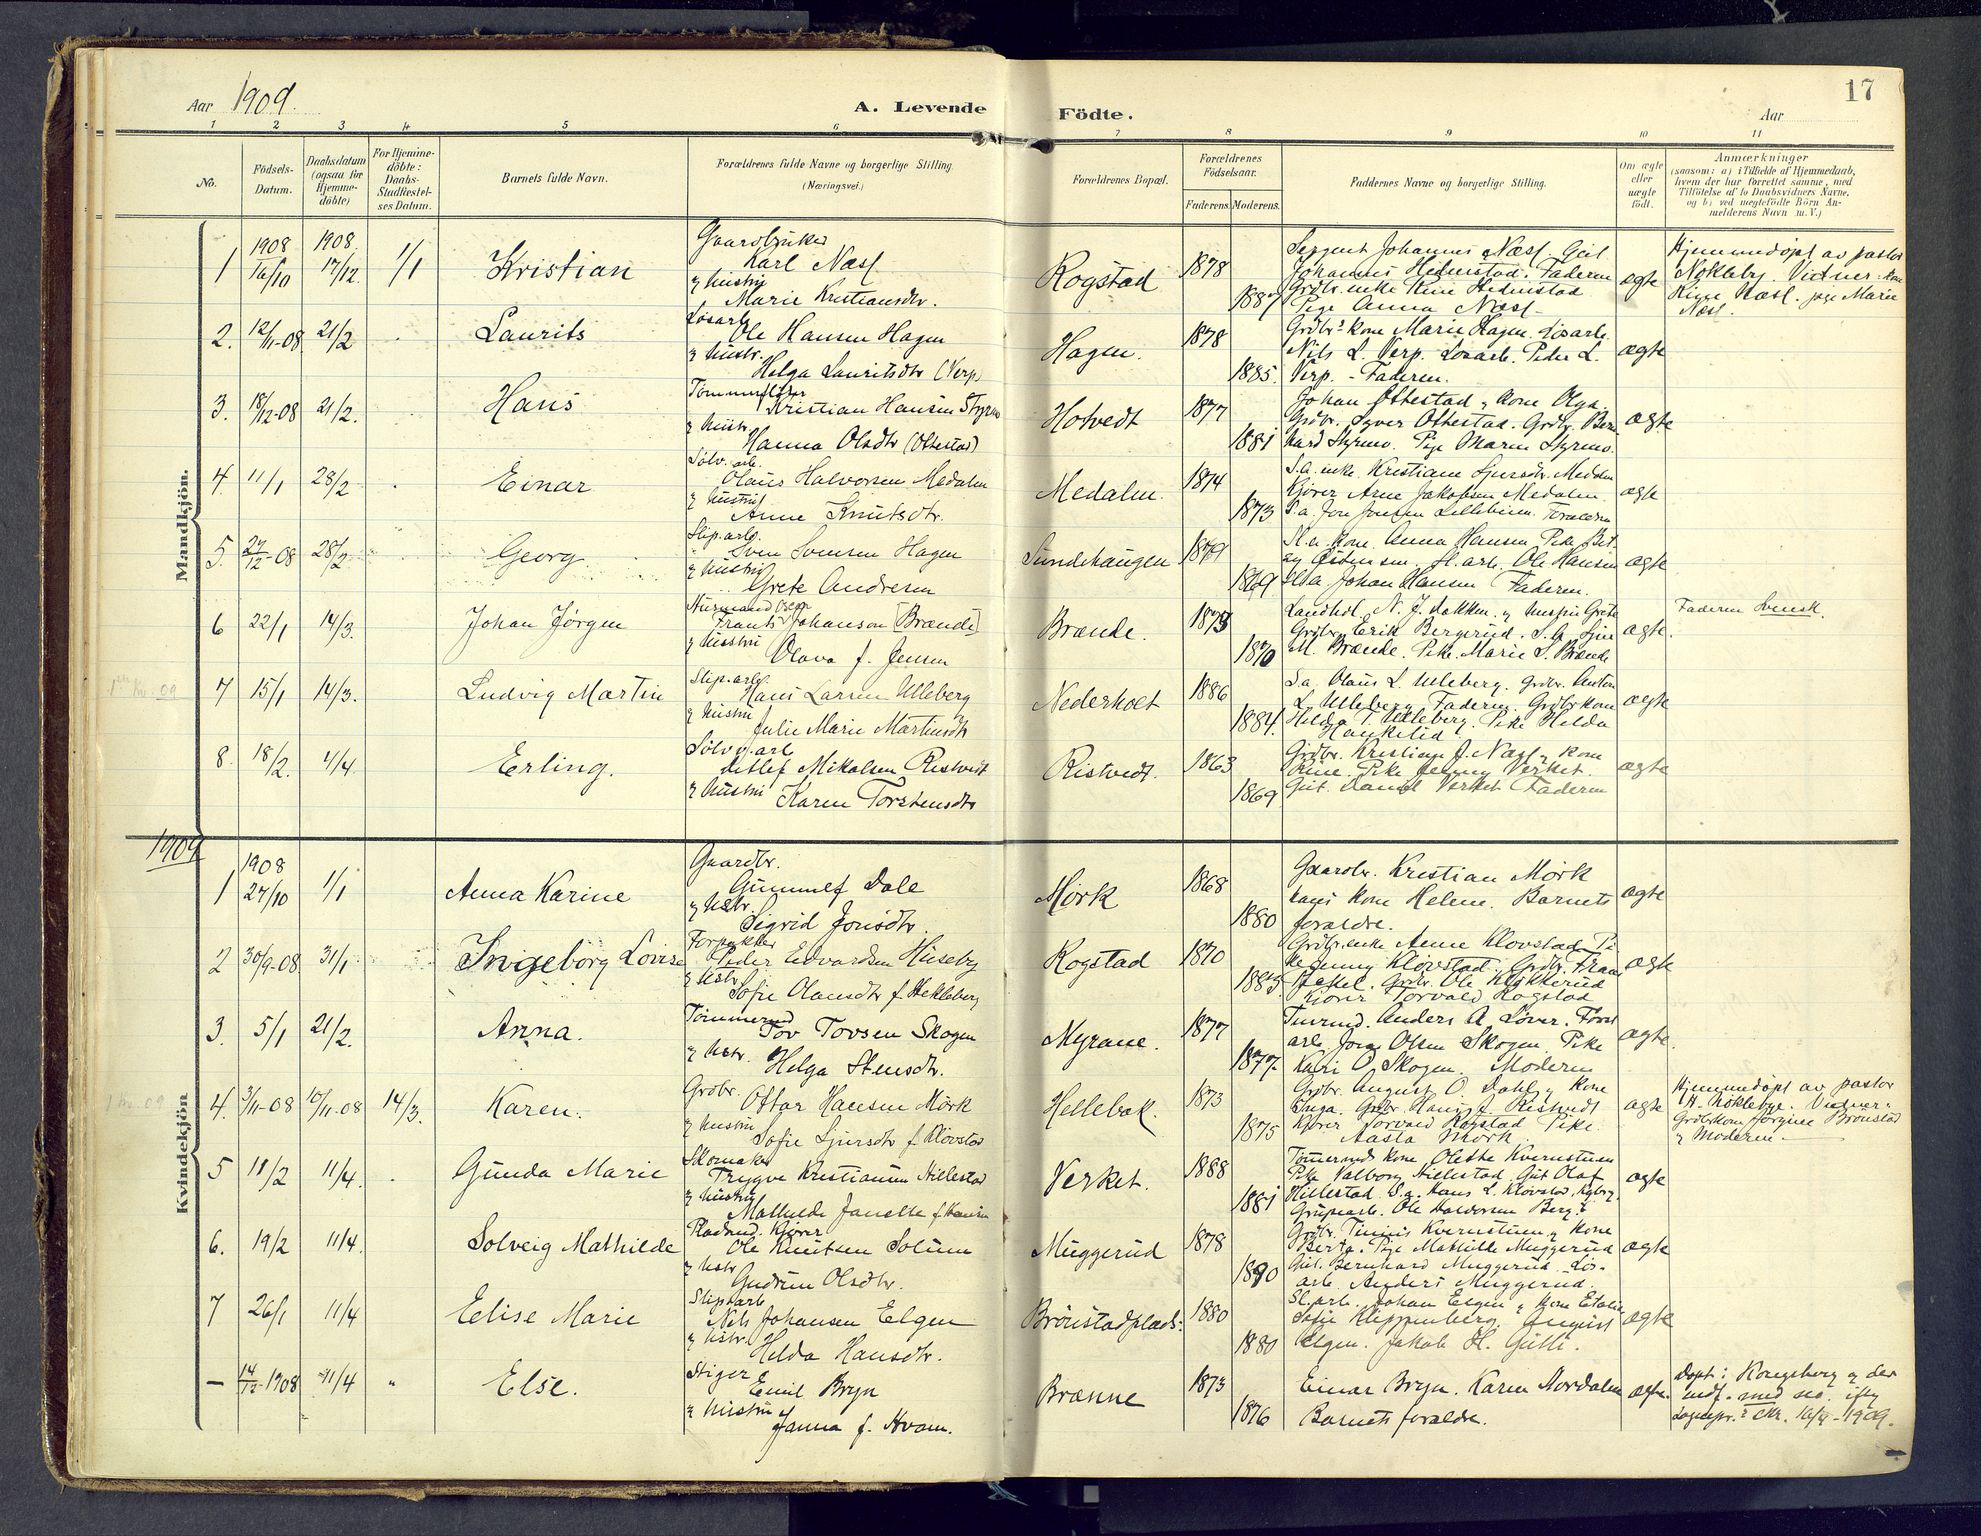 17
Aar 1909.
A. Levende Födte.
Aar
1 2 3 4 5 6 7 8 9 10 11
No.
Födsels-Datum.
Daabsdatum (ogsaa for Hjemme-döbte)
For Hjemme-döbte: Daabs-Stadfæstel-ses Datum.
Barnets fulde Navn.
Forældrenes fulde Navne og borgerlige Stilling. (Næringsvei.)
Forældrenes Bopæl.
Forældrenes Födselsaar.
Faderens. Moderens.
Faddernes Navne og borgerlige Stilling.
Om ægte eller uægte födt.
Anmærkninger
(saasom: a) i Tilfælde af Hjemmedaab,
hvem der har forrettet samme, med
Tilföielse af to Daabsvidners Navne,
og b) ved uægtefödte Börn An-
melderens Navn m. V.)
Mandkjön.
1 1908 16/10 1908. 17/12. 1/1 Kristian
Gaardbruker
Karl Næss
& hustru
Marie Kristiansdtr.
Rogstad 1878 1887
Sergent Johannes Næss. Gut
Johannes Hedenstad. Faderen
Grdbr. enke Rine Hedenstad
Pige Anna Næss
ægte
Hjemmedøpt av pastor
Nøkleby. Vidner: kone
Rigne Næss. pige Marie
Næss.
2. 12/11-08 21/2 Laurits
Løsarb.
Ole Hansen Hagen
& hustr.
Helga Lauritsdtr (Verp)
Hagen. 1878 1885.
Grdbrs kone Marie Hagen. Løsarb.
Nils L. Verp. Løsarb. Peder L.
Verp. - Faderen.
ægte
3. 18/12-08 21/2. Hans
Tømmerfløter
Kristian Hansen Styrmo
& hustr.
Hanna Olsdtr (Ottestad)
Hotvedt 1877 1881
Johan Ottestad & kone Olga.
Grdbr. Syver Ottestad. Grdbr. Bern
hard Styrmo. Pige Maren Styrmo.
ægte
4. 11/1 28/2 Einar
Sølv. arb.
Olaus Halvorsen Medalen
& hustru
Anne Knutsdtr.
Medalen. 1874 1873
S.a. enke Kristiane Sjursdtr. Medalen
Kjører Arne Jakobsen Medalen.
S.a. Jon Jonsen Lilleheim. Foraldren
ægte
5. 27/12-08 28/2 Georg
Slip. arb.
Sven Svensen Hagen
& hustru
Grete Andresen
Sundehaugen 1879 1869
Sl.a. kone Anna Hansen Pike Bet
zy Østensen. Sl. arb. Ole Hansen
Johan Hansen Faderen.
ægte
6 22/1 14/3. Johan Jørgen
Husmand Oscar
Frants Johanson [Brænde]
& hustru
Olava f. Jensen
Brænde. 1873 1870
Landhdl. N. J. Bakken & huspr. Grete
Grdbr. Erik Bergerud. S.a.
M. Brænde. Pike Marie S. Brænde
ægte
Faderen Svensk.
7 15/1 14/3. Ludvig Martin
Slip.arb.
Hans Larsen Ulleberg
& hustru
Julie Marie Martinsdtr
Nederhoet 1886 1884.
S.a. Olaus L. Ulleberg. Grdbr. Anton
L. Ulleberg. Faderen. Grdbr kone
Helda T. Ulleberg. Pike Helda
Haukelid.
ægte
8. 18/2. 4/4 Erling.
Sølv v. arb
Detlef Mikalsen Ristvedt
& hustru
Karen Torstensdtr
Ristvedt. 1863 1869
Grdbr. Kristian J. Næss & kone
Rine. Pike Jenny Verket.
Gut. Daniel Verket Faderen
ægte
1909
Kvindekjön
1 1908 27/10 1/1 Anna Karine
Gaardbr.
Gunnulf Dale
& hstr.
Sigrid Jonsdtr.
Mørk 1868 1880
Gaardbr. Kristian Mørk
hans kone Helene. Barnets
foraldre.
ægte
2 30/9-08 31/1 Ingeborg Lovise
Forpakter
Peder Edvardsen Huseby
& hstr
Sofie Olausdtr f. Hekleberg
Rogstad 1870 1883
Grdbr. enke Anne Klovstad Pi
ke Jenny Klovstad. Grdbr. Frans
Grdbr. Ole Klykkerud
Kjører Torvald Rogstad
ægte
3. 5/1 21/2. Anna.
Tømmermd
Tov Tovsen Skogen
& hstr.
Helga Stensdtr.
Myrane. 1877 1877.
Tmrmd. Anders A. Løver. Forst
arb. Jørg. Olsen Skogen. Pike
Kari O Skogen. Moderen
ægte.
4. 3/11-08 10/11-08 14/3. Karen.
Grdbr.
Ottar Hansen Mørk
& hustru
Sofie Sjursdtr f. Klovstad
Hellebæk. 1873 1875
Grdbr. August O Dahl & kone
Inga. Grdbr. Hans J. Ristvedt
Kjører Torvald Rogstad Pike
Aasta Mørk
ægte
Hjemmedøpt av pastor
H. Nøkleby. Vidner:
Grdbrkone Jørgine Brønstad
& Moderen
5 18/2 11/4. Gunda Marie
Skomaker
Trygve Kristiansen Hillestad
& hustru
Mathilde Janette f. Hansen
Verket. 1888 1881
Tømermds kone Olette Kverntuen
Pike Valborg Hillestad Gut Olaf
Hillestad. S.a. Hans L. Klovstad
Grubearb. Ole Halvorsen Berg.
ægte
6. 19/2 11/4. Solveig Mathilde
Kjører
Ole Knutsen Solum
& hstr
Gudrun Olsdtr.
Muggerud 1878 1890
Grdbr. Tinnis Kverntuen & kone
Berta. Pige Mathilde Muggerud
Gut. Bernhard Muggerud Løs-
arb Anders Muggerud.
ægte
7 26/1 11/4 Eelise Marie
Slip.arb
Nils Johansen Elgen
& hstr.
Helda Hansdtr.
Brønstadplads: 1880 1880
Sl.arb. Johan Elgen & kone
Sofie Klippenberg. August
Elgen. Jakob H. Gulli.
ægte
— 14/12-1908 11/4 " Else.
Stiger
Emil Bryn
& hustru
Janna f. Hvam.
Brænne 1873 1876
Einar Bryn. Karen Nordalen
Barnets foraldre.
ægte.
Døpt i Kongsberg & der
indf. med no. iflg
Sognepr.s skr. 16/4-1909.